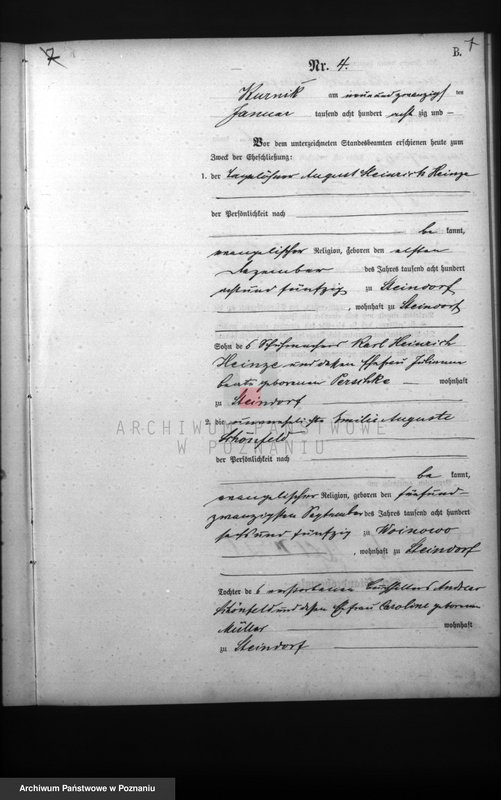 7
B. 1
Nr. 4.
Kurnik am neunundzwanzigsten
Januar tausend acht hundert acht zig und –
Vor dem unterzeichneten Standesbeamten erschienen heute zum
Zweck der Eheschließung:
1. der Tagelöhner August Heinrich Heinze
der Persönlichkeit nach
be kannt,
evangelischer Religion, geboren den elften
Dezember des Jahres tausend acht hundert
achtundfünfzig zu Steindorf
, wohnhaft zu Steindorf
Sohn des Schuhmachers Karl Heinrich
Heinze und dessen Ehefrau Juliane
Beate geborenen Perschke – wohnhaft
zu Steindorf
2. die unverehelichte Emilie Auguste
Schönfeld
der Persönlichkeit nach
be kannt,
evangelischer Religion, geboren den fünfund-
zwanzigsten September des Jahres tausend acht hundert
sechsundfünfzig zu Woinowo
, wohnhaft zu Steindorf
Tochter des verstorbenen
Schönfeld und dessen Ehefrau Caroline geborenen
Müller wohnhaft
zu Steindorf
ARCHIWUM PAŃSTWOWE
W POZNANIU
Archiwum Państwowe w Poznaniu